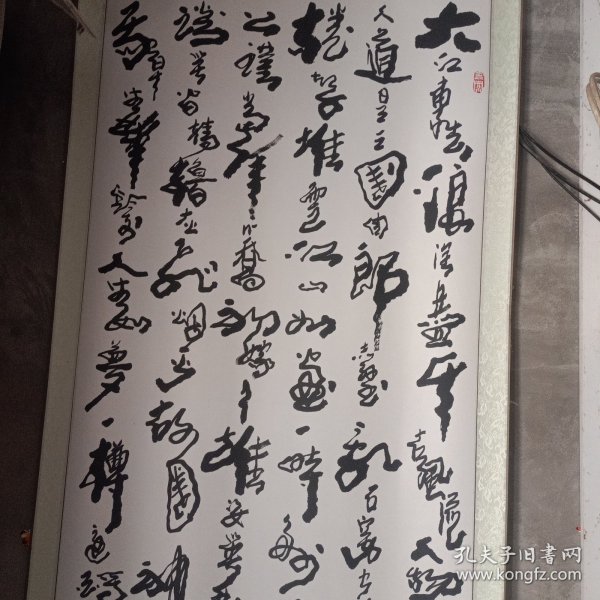 大江東去浪淘盡千古風流人物
人道是三國周郎赤壁亂石穿空
捲起千堆雪江山如畫一時多少
公瑾當年小喬初嫁了雄姿英發
談笑間檣櫓灰飛烟滅故國神
我早生華髮人生如夢一樽還酹
孔夫子旧书网
www.kongfz.com